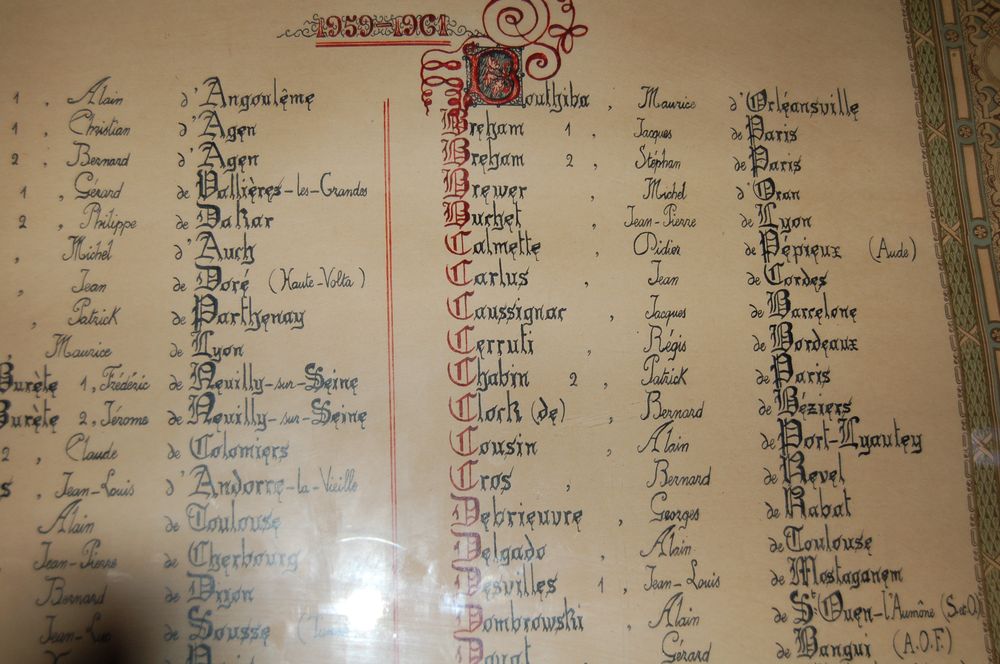 1959-1961
1, Alain d'Angoulême
1, Christian d'Agen
2, Bernard d'Agen
1, Gérard de Vallières-les-Grandes
2, Philippe de Dakar
, Michel d'Auch
, Jean de Doré (Haute-Volta)
, Patrick de Parthenay
, Maurice de Lyon
Burète 1, Frédéric de Neuilly-sur-Seine
Burète 2, Jérome de Neuilly-sur-Seine
2, Claude de Colomiers
s, Jean-Louis d'Andorre-la-Vieille
Alain de Toulouse
Jean-Pierre de Cherbourg
Bernard de Dijon
Jean-Luc de Sousse
Bouthiba, Maurice d'Orléansville
Breham 1, Jacques de Paris
Breham 2, Stéphan de Paris
Brewer, Michel d'Oran
Buchet, Jean-Pierre de Lyon
Calmette, Didier de Pépieux (Aude)
Carlus, Jean de Cordes
Caussignac, Jacques de Barcelone
Cerruti, Régis de Bordeaux
Chabin 2, Patrick de Paris
Clock (de), Bernard de Béziers
Cousin, Alain de Port-Lyautey
Cros, Bernard de Revel
Debrieuvre, Georges de Rabat
Delgado, Alain de Toulouse
Desvilles 1, Jean-Louis de Mostaganem
Dombrowski, Alain de St Ouen-l'Aumône (S.et O.)
Gérard de Bangui (A.O.F.)